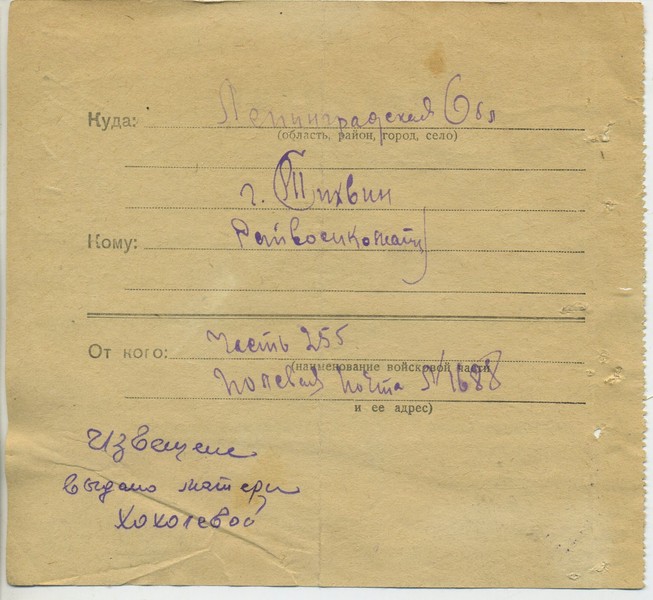 Куда: Ленинградская Обл
(область, район, город, село)
г. Тихвин
Кому: Райвоенкомату
От кого: Часть 255
(наименование войсковой части
Полевая почта № 1688
и ее адрес)
Извещение
выдано матери
Хохолевой